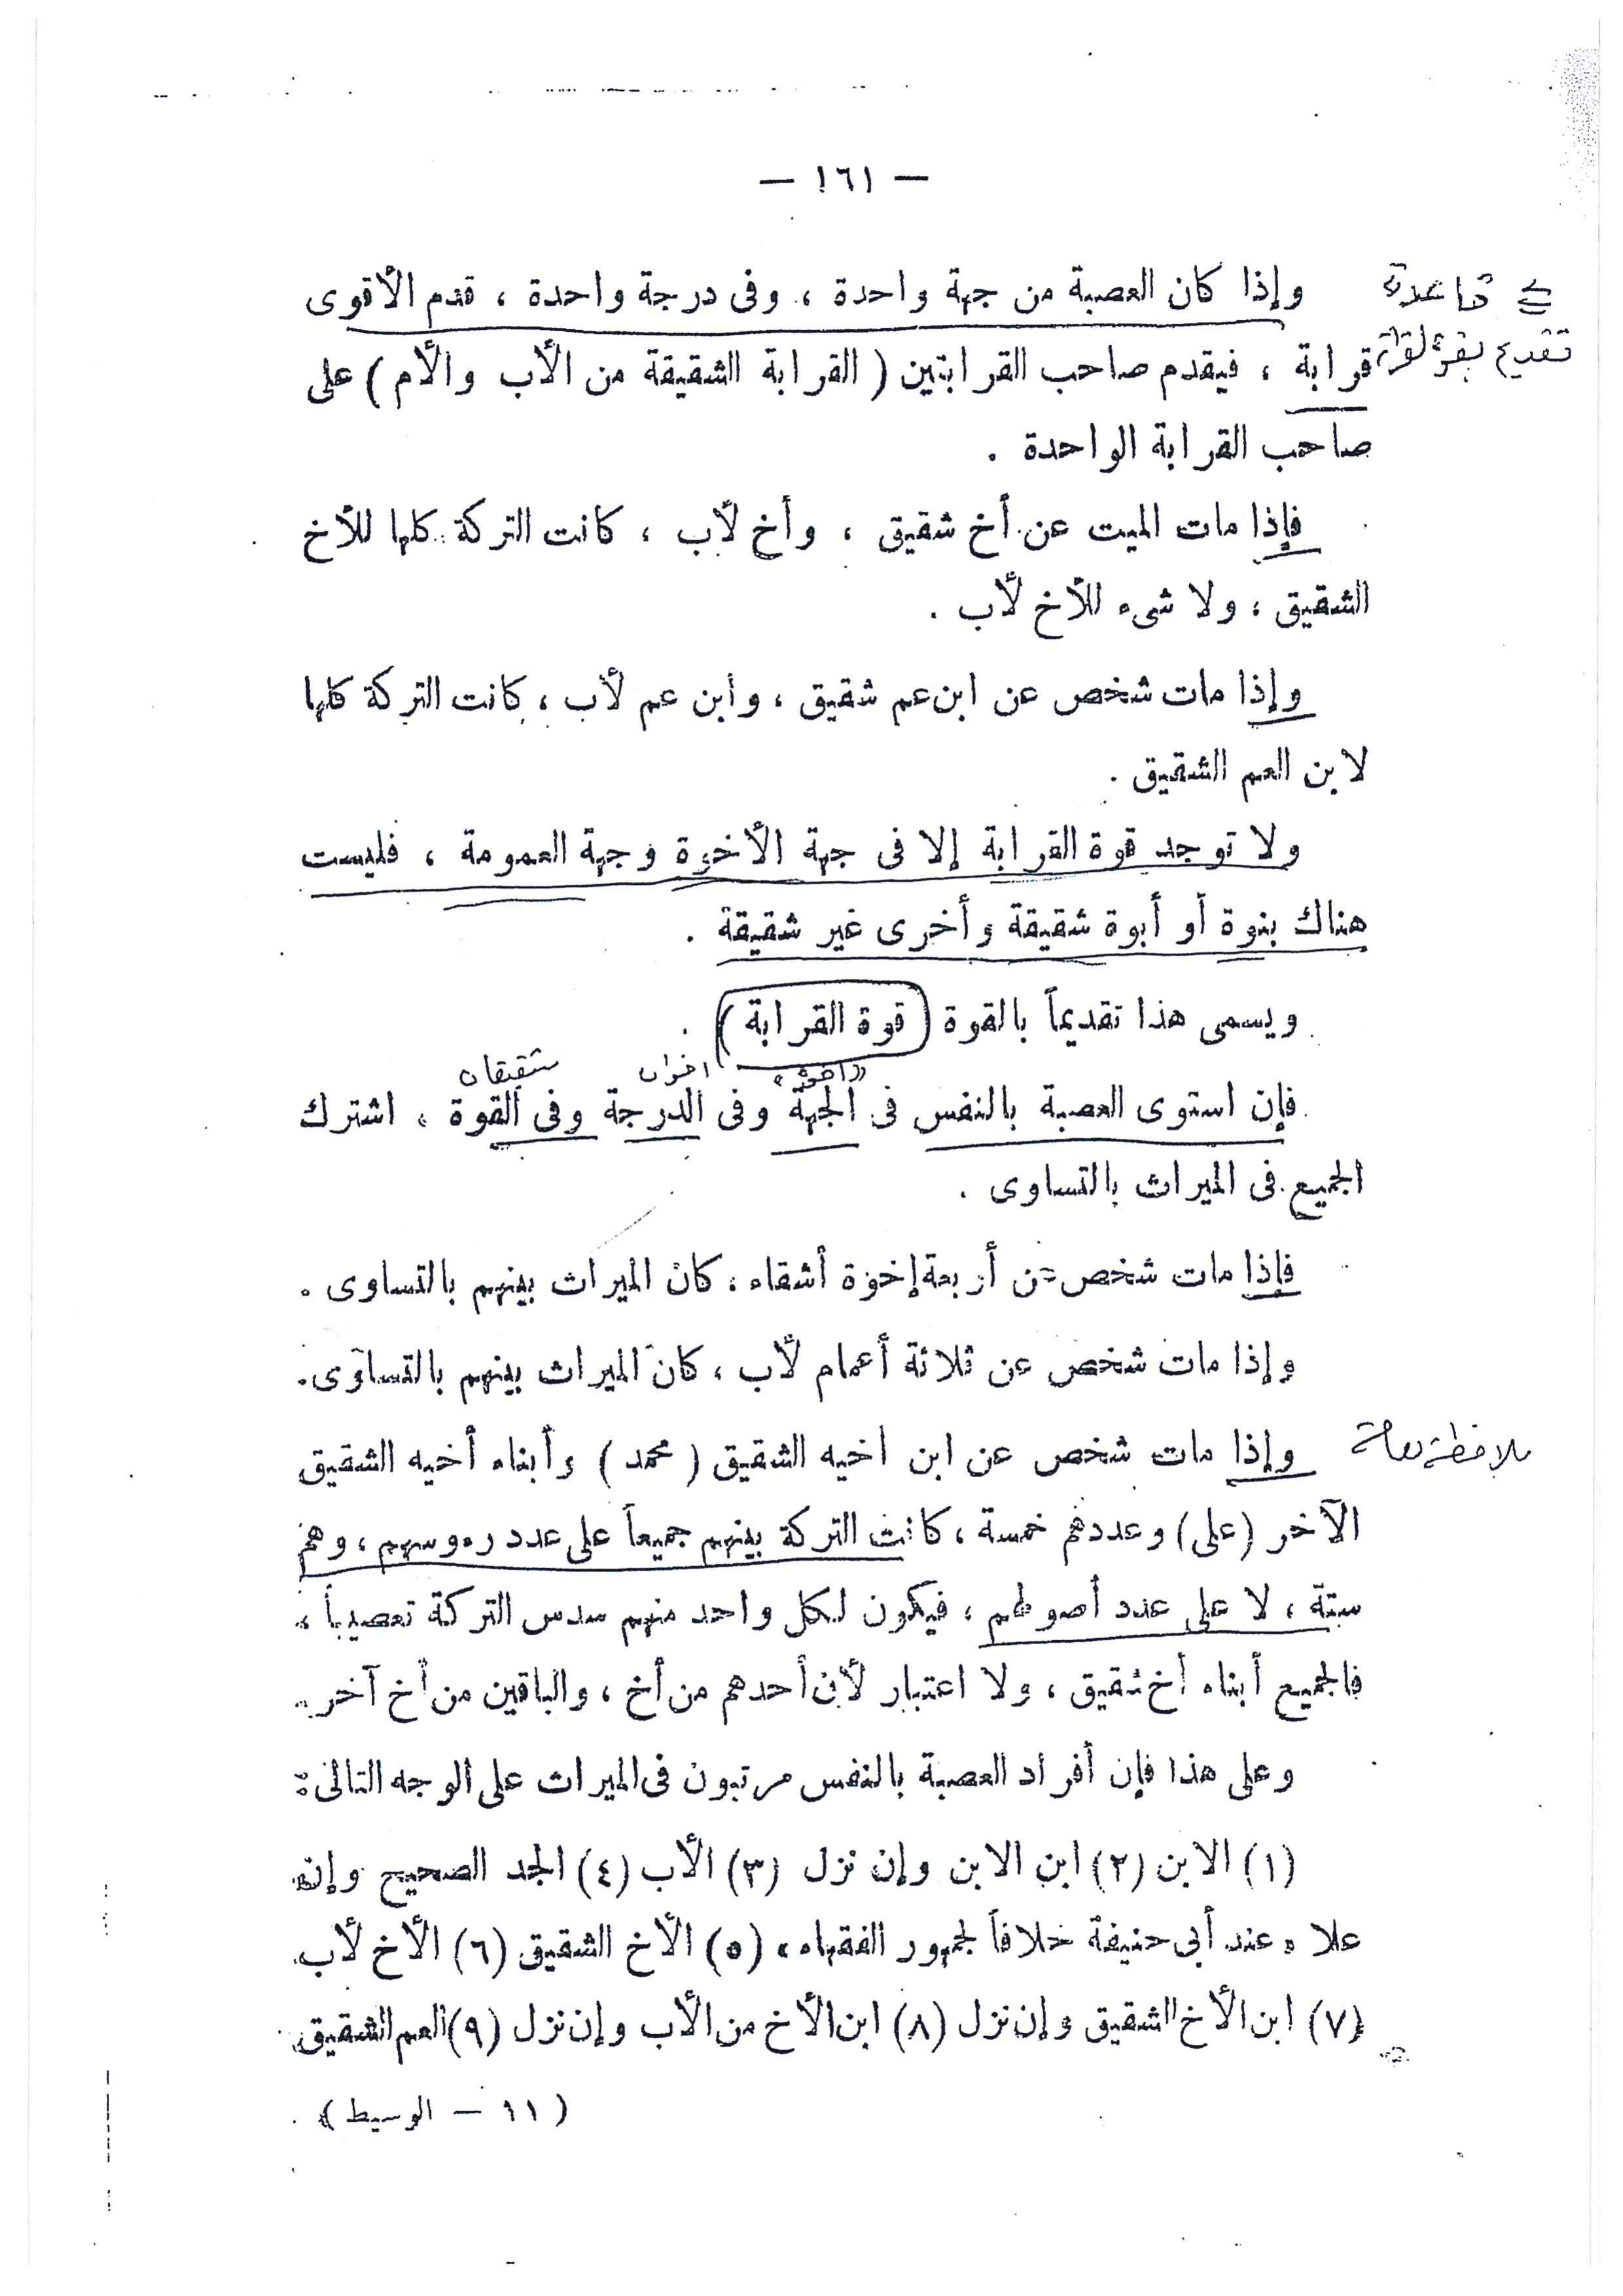 — ١٦١ —
قاعدة
وإذا كان العصبة من جهة واحدة ، وفى درجة واحدة ، قدم الأقوى
تقديم بقوة القرابة
قرابة ، فيقدم صاحب القرابتين ( القرابة الشقيقة من الأب والأم ) على
صاحب القرابة الواحدة .
فإذا مات الميت عن أخ شقيق ، وأخ لأب ، كانت التركة كلها للأخ
الشقيق ، ولا شىء للأخ لأب .
وإذا مات شخص عن ابن عم شقيق ، وابن عم لأب ، كانت التركة كلها
لابن العم الشقيق .
ولا توجد قوة القرابة إلا فى جهة الأخوة وجهة العمومة ، فليست
هناك بنوة أو أبوة شقيقة وأخرى غير شقيقة .
ويسمى هذا تقديماً بالقوة ( قوة القرابة ) .
«اخوة» اخوان شقيقان
فإن استوى العصبة بالنفس فى الجهة وفى الدرجة وفى القوة ، اشترك
الجميع فى الميراث بالتساوى .
فإذا مات شخص عن أربعة إخوة أشقاء ، كان الميراث بينهم بالتساوى .
وإذا مات شخص عن ثلاثة أعمام لأب ، كان الميراث بينهم بالتساوى .
ملاحظة هامة
وإذا مات شخص عن ابن اخيه الشقيق ( محمد ) وأبناء أخيه الشقيق
الآخر (على) وعددهم خمسة ، كانت التركة بينهم جميعاً على عدد رءوسهم ، وهم
ستة ، لا على عدد أصولهم ، فيكون لكل واحد منهم سدس التركة تعصيباً ،
فالجميع أبناء أخ شقيق ، ولا اعتبار لأن أحدهم من أخ ، والباقين من أخ آخر .
وعلى هذا فإن أفراد العصبة بالنفس مرتبون فى الميراث على الوجه التالى :
(١) الابن (٢) ابن الابن وإن نزل (٣) الأب (٤) الجد الصحيح وإن
علا « عند أبى حنيفة خلافاً لجمهور الفقهاء » (٥) الأخ الشقيق (٦) الأخ لأب
(٧) ابن الأخ الشقيق وإن نزل (٨) ابن الأخ من الأب وإن نزل (٩) العم الشقيق
( ١١ — الوسيط )